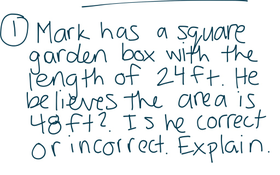 ① Mark has a square
garden box with the
length of 24ft. He
believes the area is
48ft². Is he correct
or incorrect. Explain.